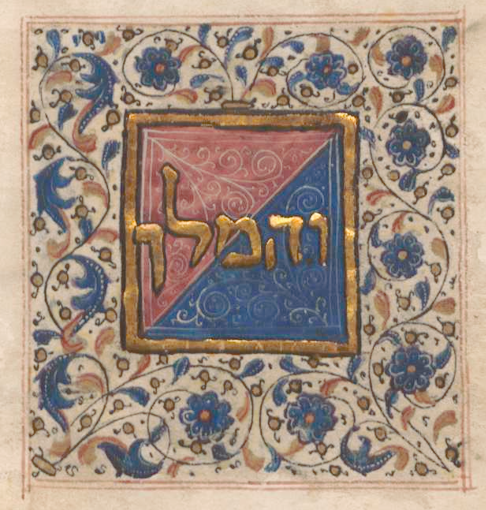 והמלך